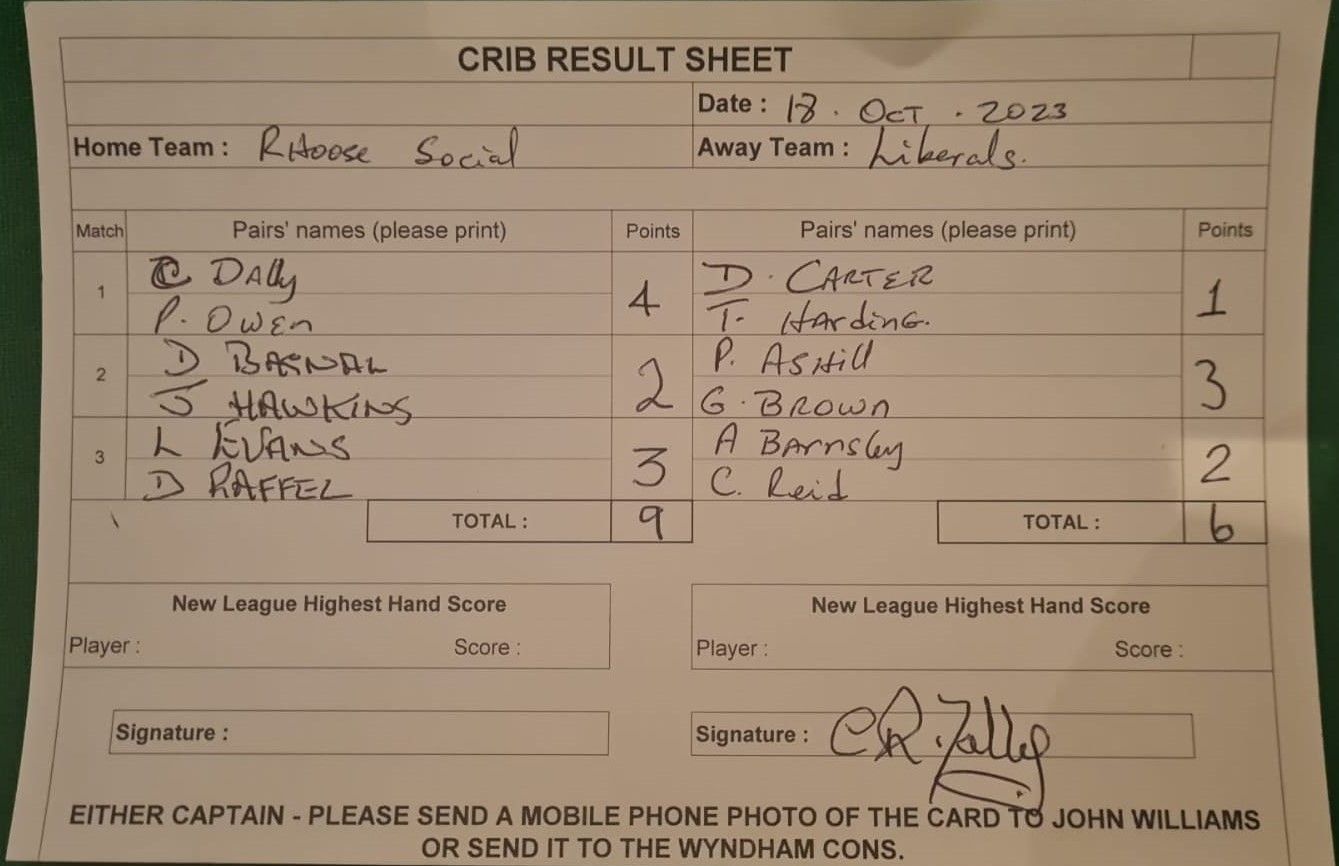 CRIB RESULT SHEET
Date : 18 . OCT . 2023
Home Team : RHoose Social Away Team : Liberals.
Match Pairs' names (please print) Points Pairs' names (please print) Points
1 C Dally 4 D. CARTER 1
P. Owen T. HArdinG.
2 D BAGNAL 2 P. AsHill 3
J HAWKINS G. BROWn
3 L EVANS 3 A BArnsley 2
D RAFFEL C. Reid
TOTAL : 9 TOTAL : 6
New League Highest Hand Score New League Highest Hand Score
Player : Score : Player : Score :
Signature : Signature : CR.
EITHER CAPTAIN - PLEASE SEND A MOBILE PHONE PHOTO OF THE CARD TO JOHN WILLIAMS
OR SEND IT TO THE WYNDHAM CONS.